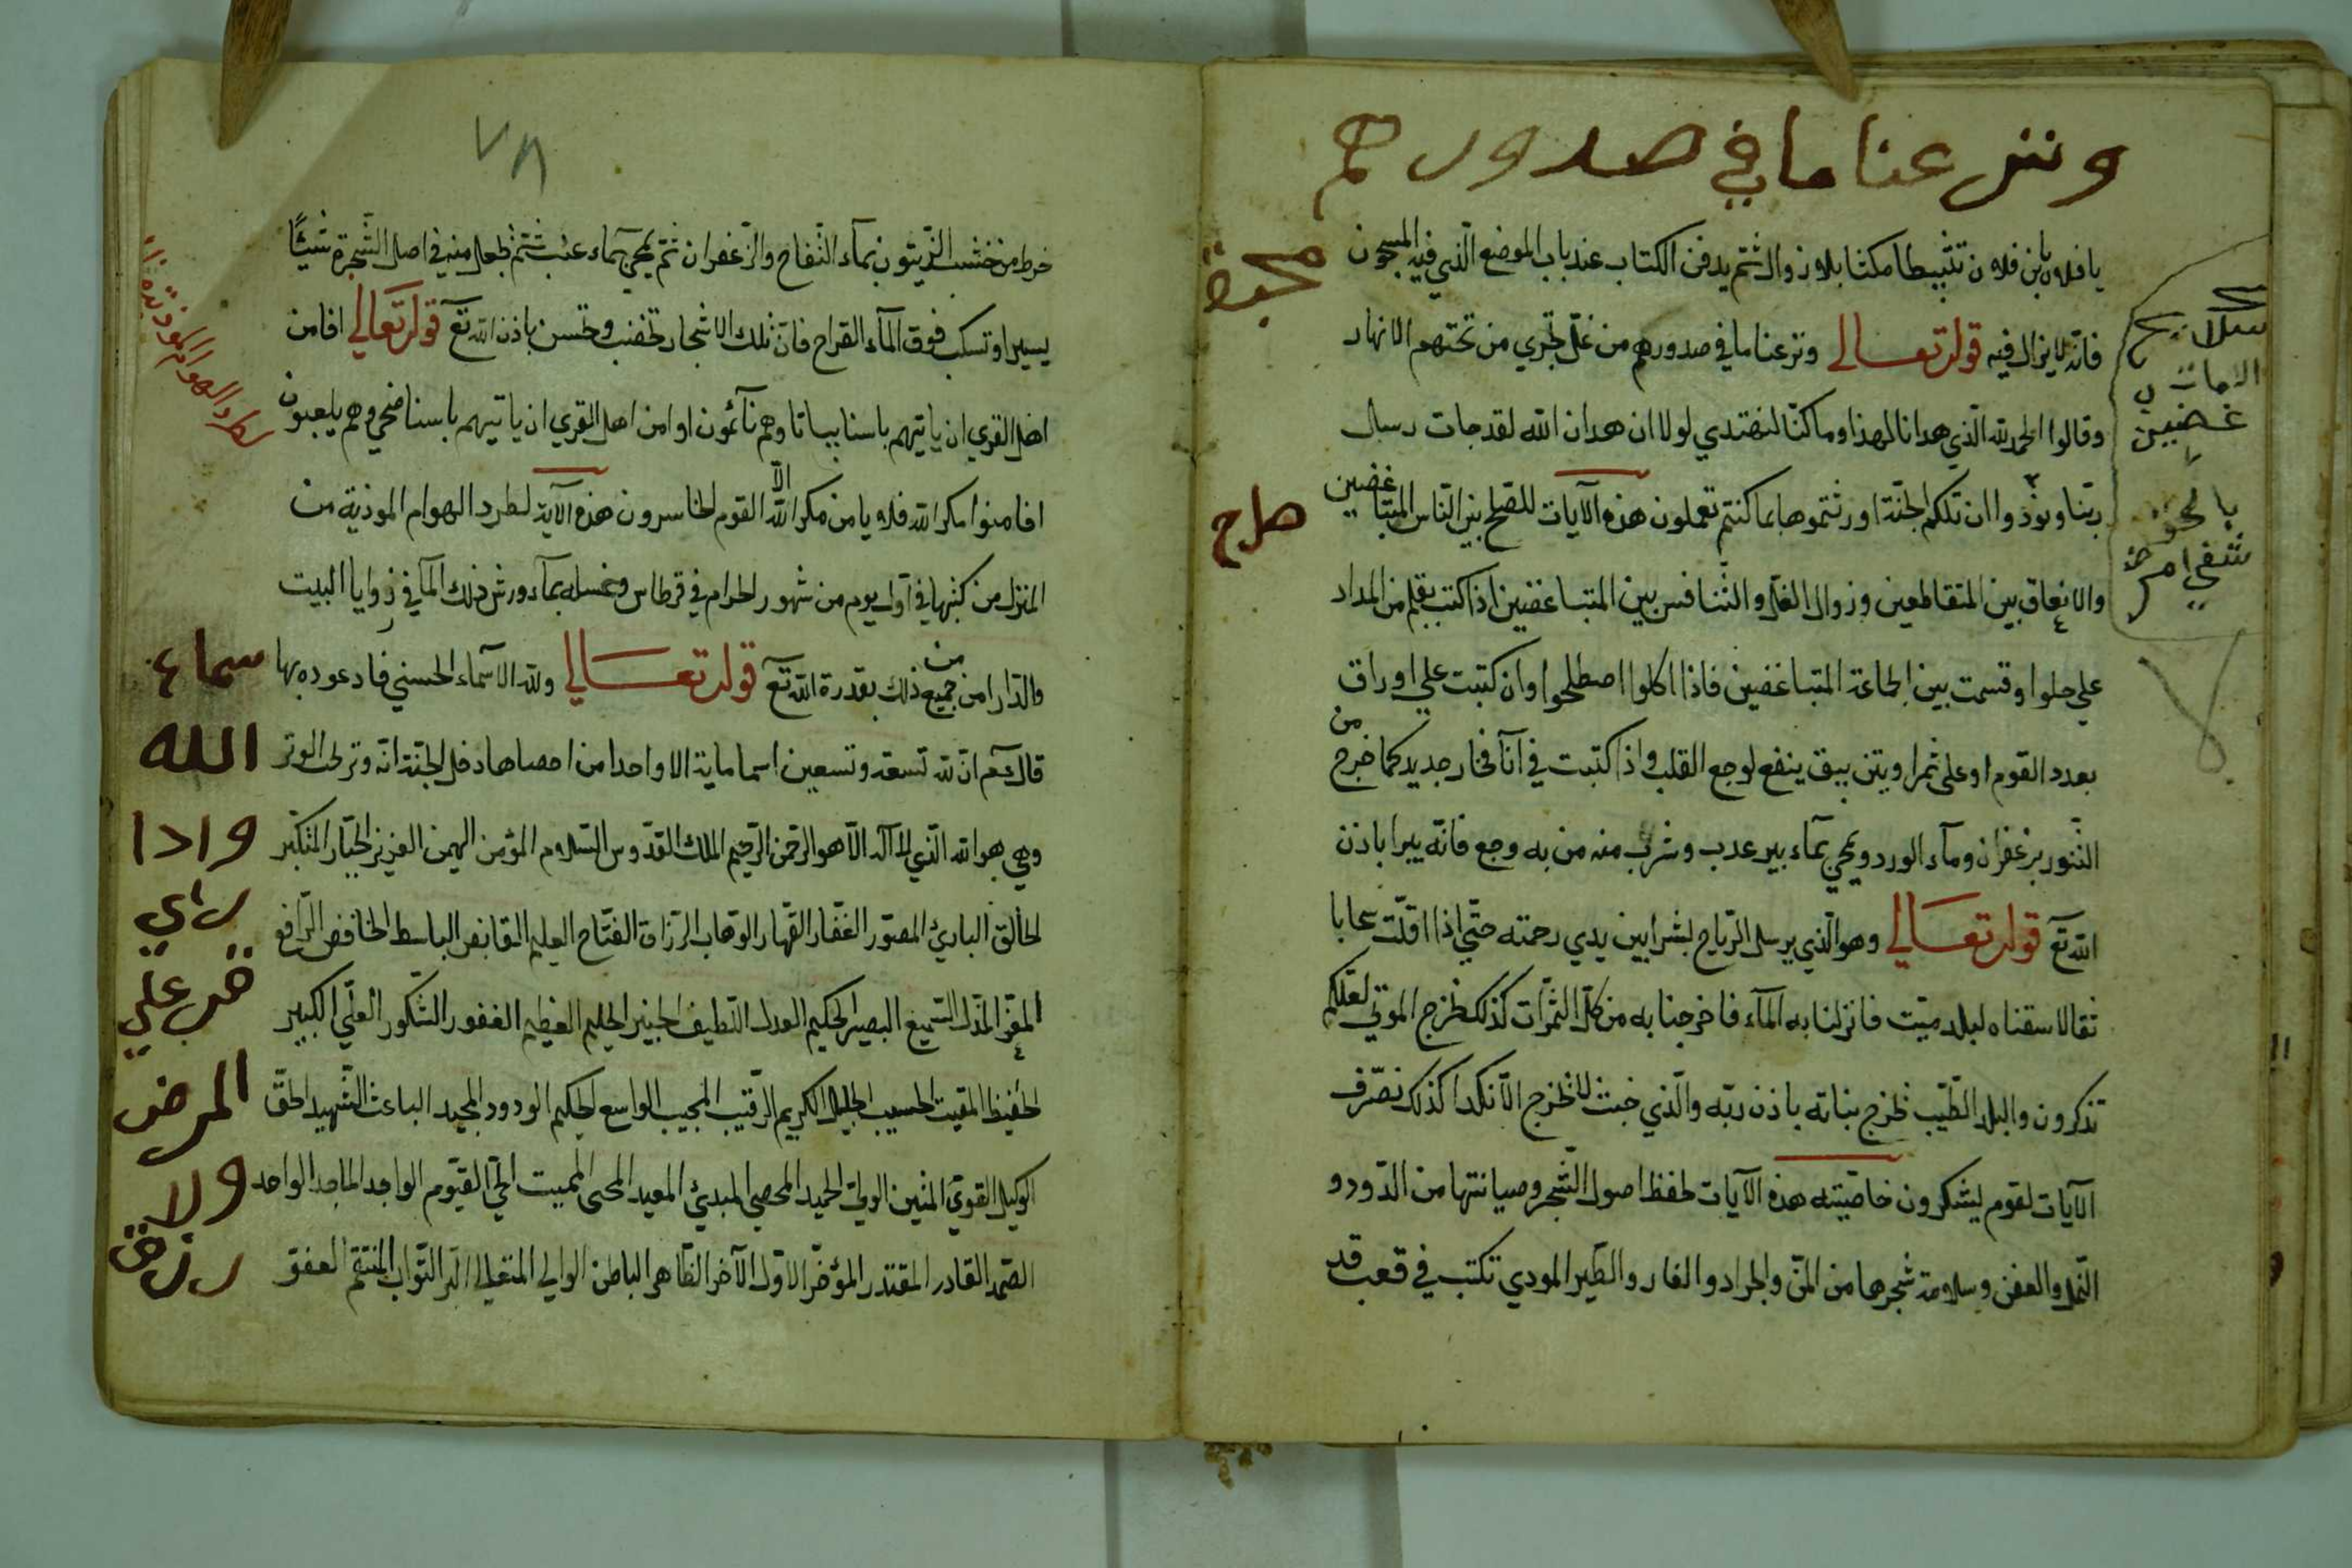 ونزعنا ما في صدورهم
يا فلان بن فلان تثبيطا مكثا بلا زوال ثم يدفن الكتاب عند باب الموضع الذي فيه المسجون
محبة
فانه لا يزال فيه قوله تعالى ونزعنا ما في صدورهم من غل تجري من تحتهم الانهار
وقالوا الحمد لله الذي هدانا لهذا وما كنا لنهتدي لولا ان هدان الله لقد جات رسل
ربنا ونودوا ان تلكم الجنة اورثتموها بما كنتم تعملون هذه الآيات للصلح بين الناس المتباغضين
والاتفاق بين المتقاطعين وزوال الغل والتنافس بين المتباغضين اذا كتب بقلم من المداد
علي حلوا وقسمت بين الجماعة المتباغضين فاذا اكلوا اصطلحوا وان كتبت علي اوراق
بعدد القوم او على ثمر او يتن يبق ينفع لوجع القلب واذا كتبت في آنآ فخار جديد كما خرج من
التنور بزعفران ومآء الورد ويمحي بمآء بير عدب وشرب منه من به وجع فانه يبرا باذن
الله تع قوله تعالي وهو الذي يرسل الرياح بشرا بين يدي رحمته حتي اذا اقلت سحابا
ثقالا سقناه لبلد ميت فانزلنا به المآء فاخرجنا به من كل الثمرات كذلك نخرج الموتى لعلكم
تذكرون والبلد الطيب نخرج بناته باذن ربه والذي خبث لا نخرج الا نكدا كذلك نصرف
الآيات لقوم ليشكرون خاصيته هذه الآيات لحفظ اصول الشجر وصيانتها من الدود و
النمل والعفن وسلامة شجرها من المن والجراد والفار والطير المودي تكتب في قعب قد
٧٨
خرط من خشب الزيتون بمآء التفاح والزعفران ثم يمحي بمآء عنب ثم نجعل منه في اصل الشجرة شيئا
يسيرا وتسكب فوق المآء القراح فان تلك الاشجار تخضب وتحسن باذن الله تع قوله تعالي افامن
اهل القري ان ياتيهم باسنا بياتا وهم نآئمون اوامن اهل القري ان ياتيهم باسنا ضحي وهم يلعبون
لطرد الهوام الموذية
افامنوا مكر الله فلا يامن مكر الله الا القوم الخاسرون هذه الآية لطرد الهوام الموذية من
المنزل من كتبها في آول يوم من شهور الحرام في قرطاس وغسله بمآء ورش ذلك المآ في زوايا البيت
والدار امن من جميع ذلك بقدرة الله تع قوله تعالي ولله الاسماء الحسني فادعوه بها
سماء
قال عم ان لله تسعة وتسعين اسما ماية الا واحدا من احصاها دخل الجنة انه وتر يحب الوتر
الله
وهي هو الله الذي لا آله الا هو الرحمن الرحيم الملك القدوس السلام المؤمن المهيمن العزيز الجبار المتكبر
الخالق البارئ المصور الغفار القهار الوهاب الرزاق الفتاح العليم القابض الباسط الخافض الرافع
المعز المذل السميع البصير الحكيم العدل اللطيف الخبير الحليم العظيم الغفور الشكور العلي الكبير
الحفيظ المقيت الحسيب الجليل الكريم الرقيب المجيب الواسع الحكيم الودود المجيد الباعث الشهيد الحق
المرض
الوكيل القوي المتين الولي الحميد المحصي المبدئ المعيد المحى المميت الحي القيوم الواجد الماجد الواحد
الصمد القادر المقتدر المؤخر الاول الآخر الظاهر الباطن الوالي المتعالي البر التواب المنتقم العفو